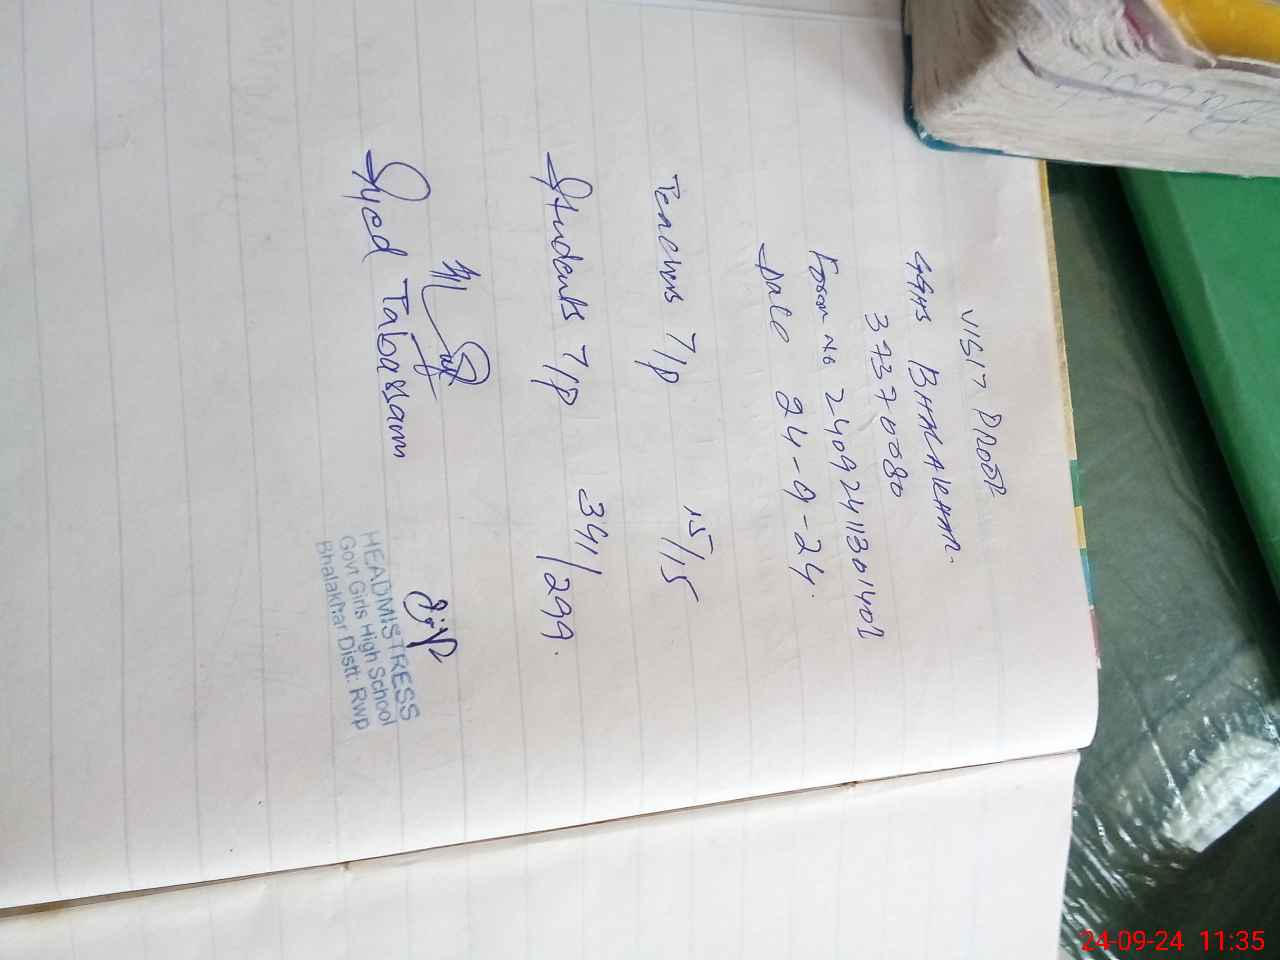 VISIT PROOF
GGHS BHALAKHAR.
37370080
Form No 240924113011402
Date 24-9-24.
Teachers T/P 15/15
Students T/P 341/299.
Syed Tabassam
HEADMISTRESS
Govt Girls High School
Bhalakhar Distt: Rwp
24-09-24 11:35